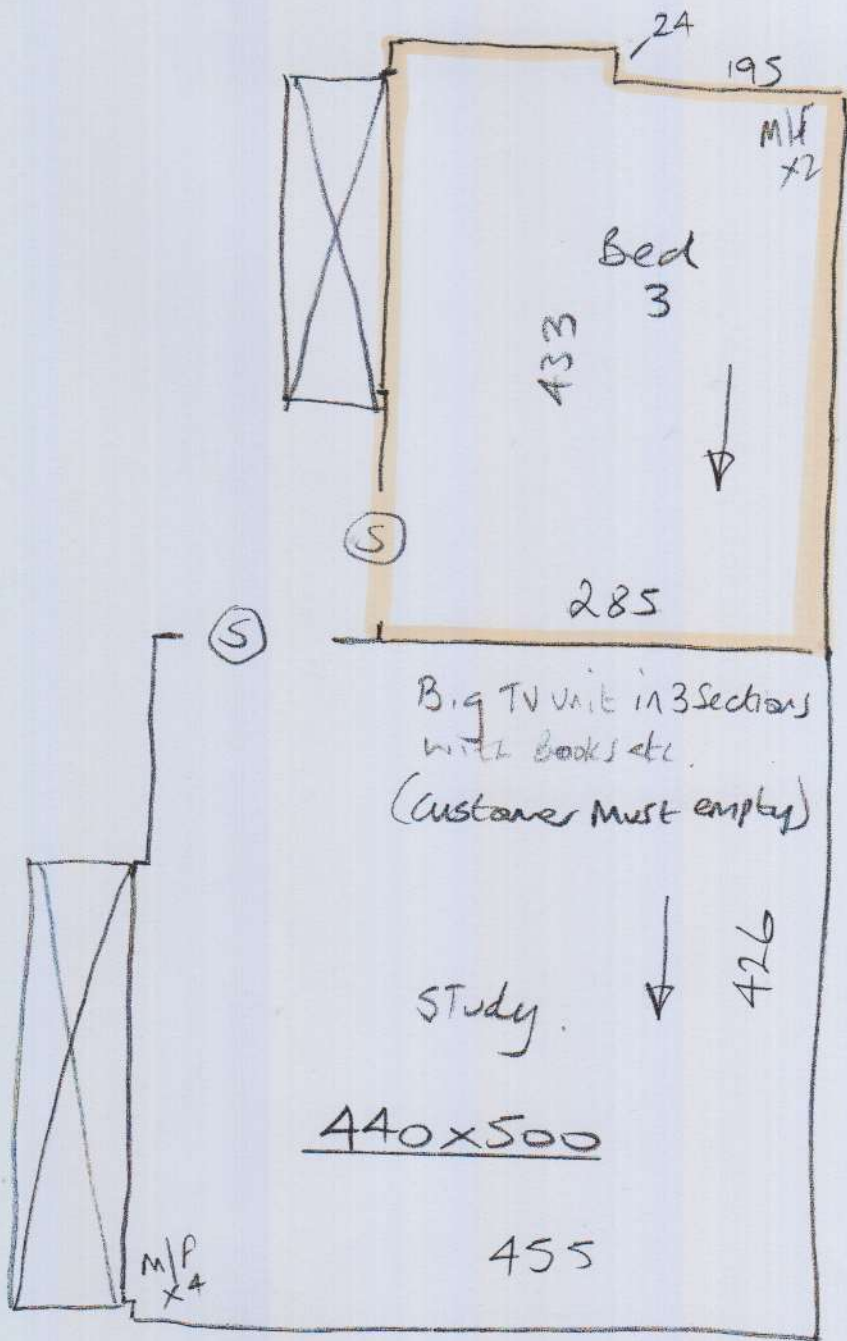 24
195
M/F
x2
Bed
3
433
S
285
S
Big TV unit in 3 Sections
with Books etc.
(Customer Must empty)
426
Study.
440x500
455
M/P
x4